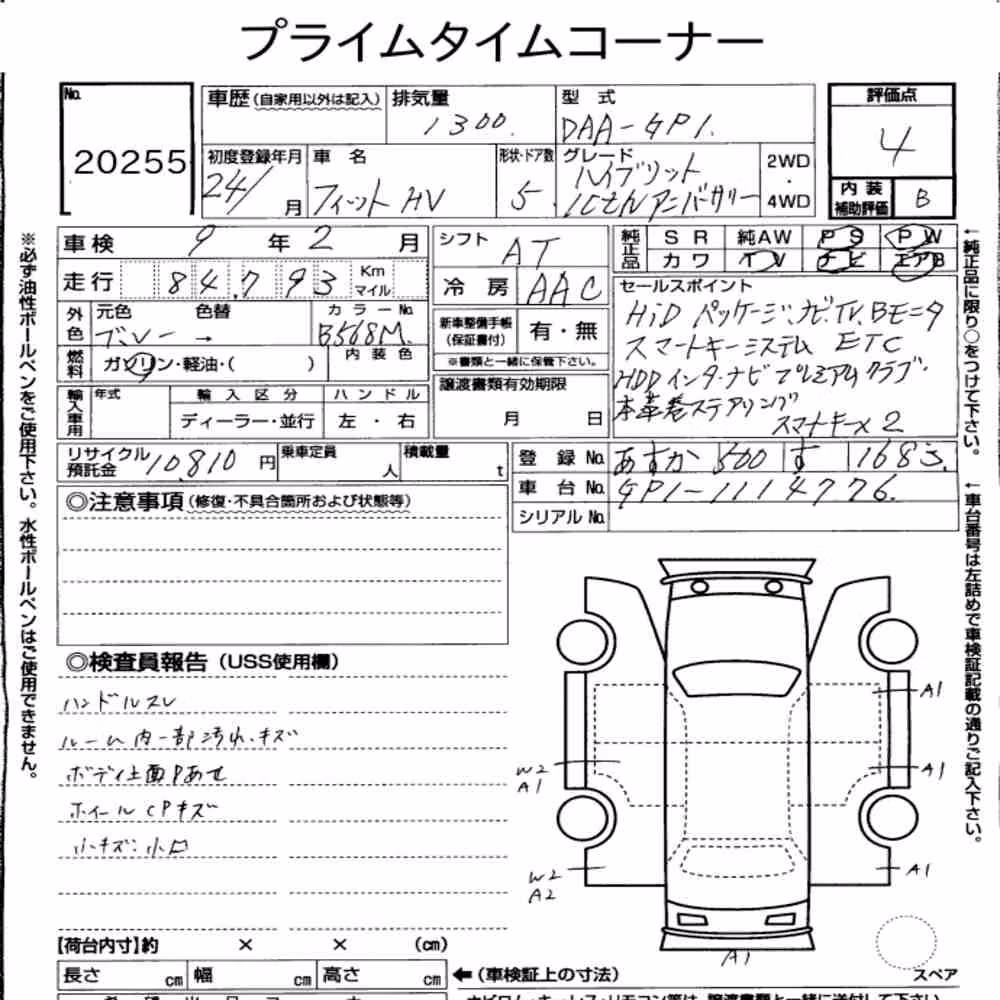 プライムタイムコーナー
No. 20255
車歴(自家用以外は記入)
排気量 1300.
型式 DAA-GP1.
評価点 4
初度登録年月 24/ 月
車名 フィット HV
形状・ドア数 5.
グレード ハイブリット
10thアニバーサリー
2WD・4WD
内装補助評価 B
車検 9年 2月
シフト AT
純正品 SR 純AW PS PW
カワ TV ナビ エアB
走行 84,793 Km マイル
冷房 AAC
セールスポイント
HiD パッケージ、ナビ、TV、BEニタ
スマートキーシステム ETC
HDDインターナビプレミアムクラブ.
本革巻ステアリング
スマートキー×2
外色 元色 色替 カラーNo.
グレー → B568M.
新車整備手帳(保証書付) 有・無
※書類と一緒に保管下さい。
燃料 ガソリン・軽油・( ) 内装色
輸入車用 年式 輸入区分 ハンドル
ディーラー・並行 左・右
譲渡書類有効期限
月 日
リサイクル預託金 10,810 円
乗車定員 人
積載量 t
登録No. あすか 500 す 1683.
車台No. GP1-1114776.
シリアルNo.
◎注意事項(修復・不具合箇所および状態等)
◎検査員報告(USS使用欄)
ハンドルスレ
ルーム内一部汚れ、キズ
ボディ上面Pあせ
ホイールCPキズ
小キズ:小凹
A1
W2
A1
A1
W2
A2
A1
A1
スペア
【荷台内寸】約 × × (cm)
長さ cm 幅 cm 高さ cm
←(車検証上の寸法)
※必ず油性ボールペンをご使用下さい。水性ボールペンはご使用できません。
←純正品に限り○をつけて下さい。
←車台番号は左詰めで車検証記載の通りご記入下さい。